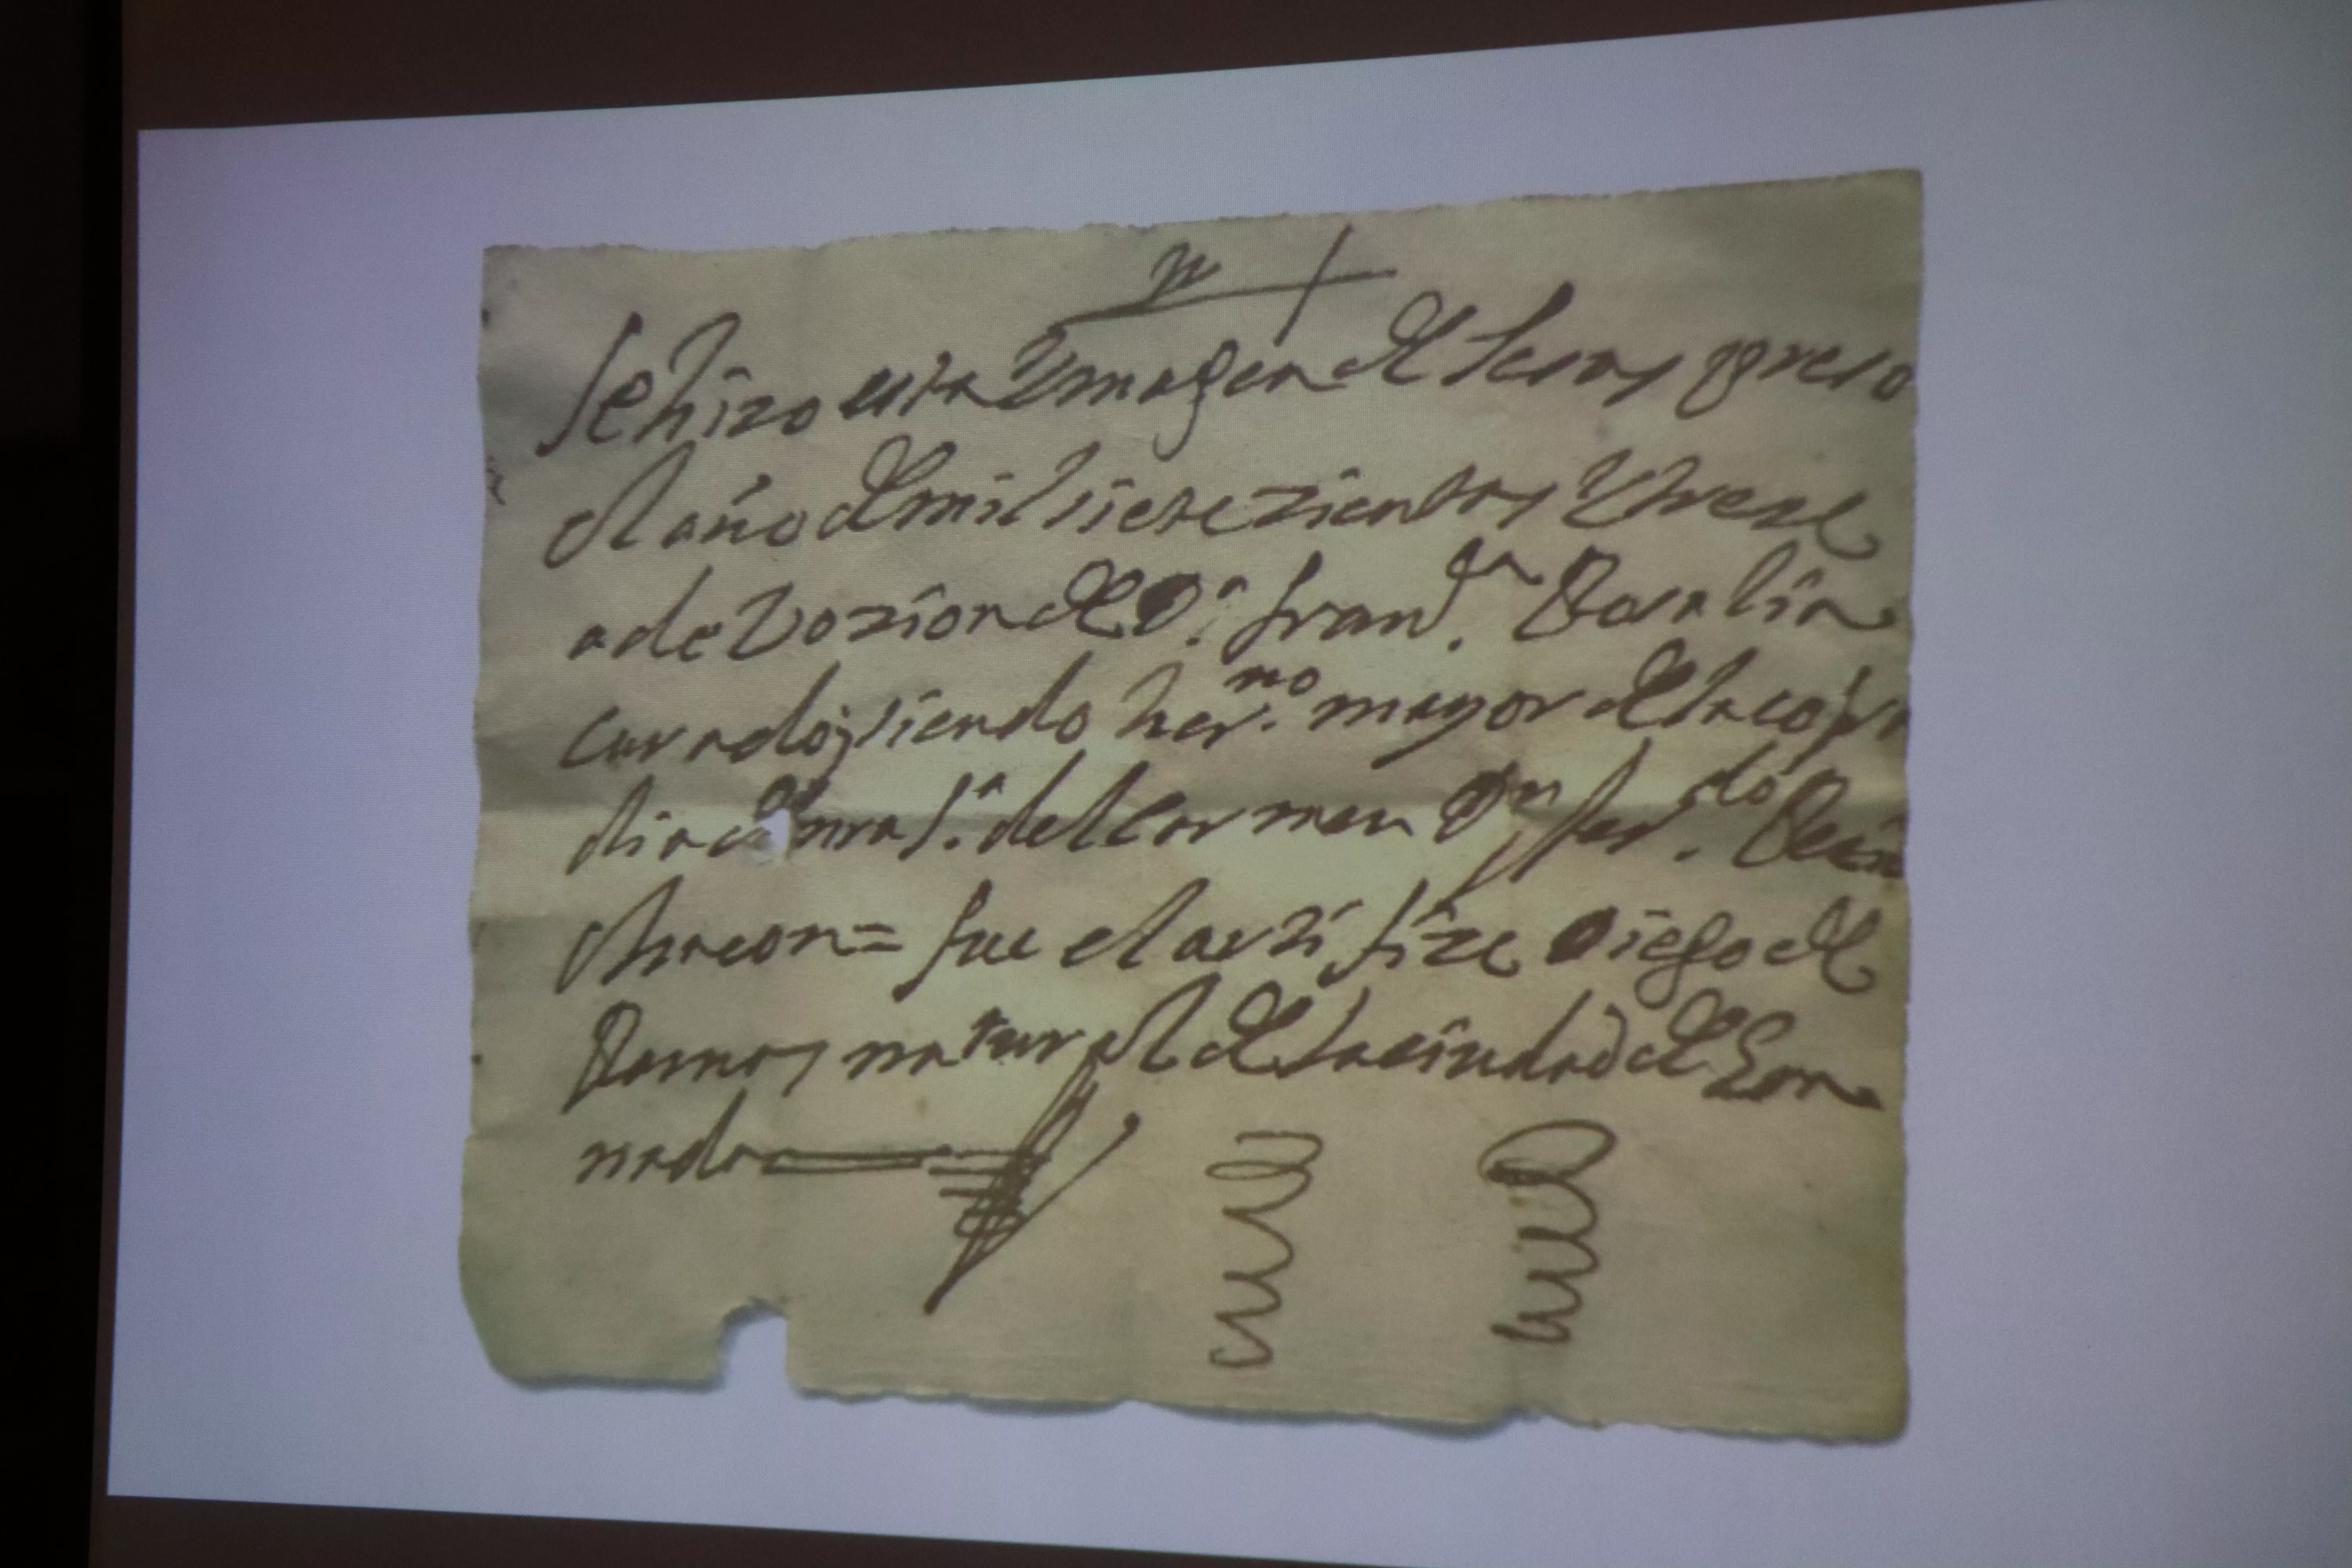 Se hizo esta Ymagen de Jesus preso
el año de mil siete zientos y treze
a deVozion de D.ª fran.ca Rosalia
curado, siendo her.no mayor de la cofra
dia de nra S.ª del Carmen Dn fer.do
Chacon = fue el artifize Diego de
Ramos natural de la ciudad de Gra
nada